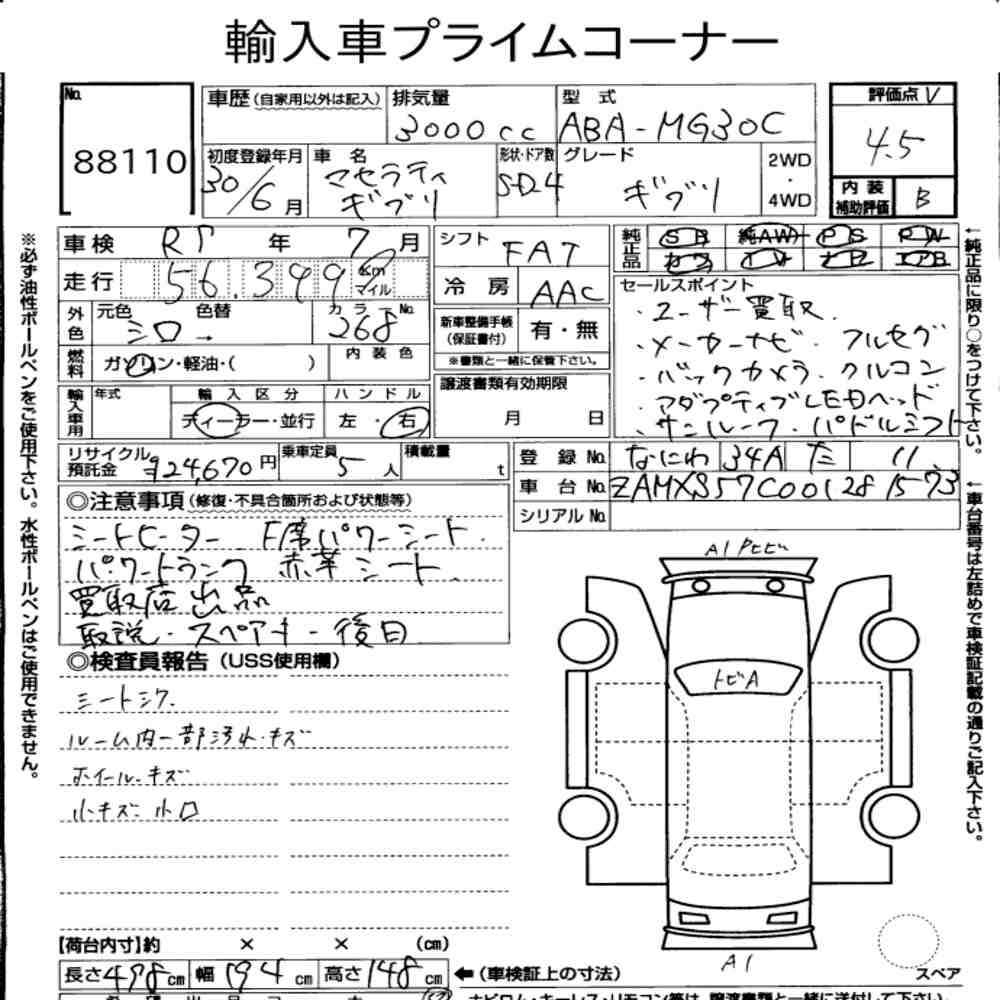 輸入車プライムコーナー
No. 88110
車歴 (自家用以外は記入)
排気量 3000cc
型式 ABA-MG30C
評価点 V 4.5
内装補助評価 B
初度登録年月 30/6月
車名 マセラティ ギブリ
形状・ドア数 SD4
グレード ギブリ
2WD・4WD
車検 R5年 7月
シフト FAT
純正品 SR 純AW PS PW
カワ TV ナビ エアB
走行 56,399 Km マイル
冷房 AAC
セールスポイント
・ユーザー買取
・メーカーナビ フルセグ
・バックカメラ・クルコン
・アダプティブLEDヘッド
・サンルーフ・パドルシフト
外色 元色 シロ 色替 → カラーNo. 268
新車整備手帳(保証書付) 有・無
※書類と一緒に保管下さい。
燃料 ガソリン・軽油・( ) 内装色
譲渡書類有効期限 月 日
輸入車用 年式 輸入区分 ディーラー・並行 ハンドル 左・右
リサイクル預託金 ¥24,670円
乗車定員 5人
積載量 t
登録No. なにわ 34A た 11
車台No. ZAMXS57C001281573
シリアルNo.
◎注意事項(修復・不具合箇所および状態等)
シートヒーター F席パワーシート
パワートランク 赤革シート
買取店出品
取説・スペアキー後日
◎検査員報告(USS使用欄)
シートシワ
ルーム内一部汚れ・キズ
ホイールキズ
小キズ 小凹
A1 Pトビ
トビA
A1
スペア
【荷台内寸】約 × × (cm)
長さ498cm 幅194cm 高さ148cm ←(車検証上の寸法)
※必ず油性ボールペンをご使用下さい。水性ボールペンはご使用できません。
←純正品に限り○をつけて下さい。
←車台番号は左詰めで車検証記載の通りご記入下さい。